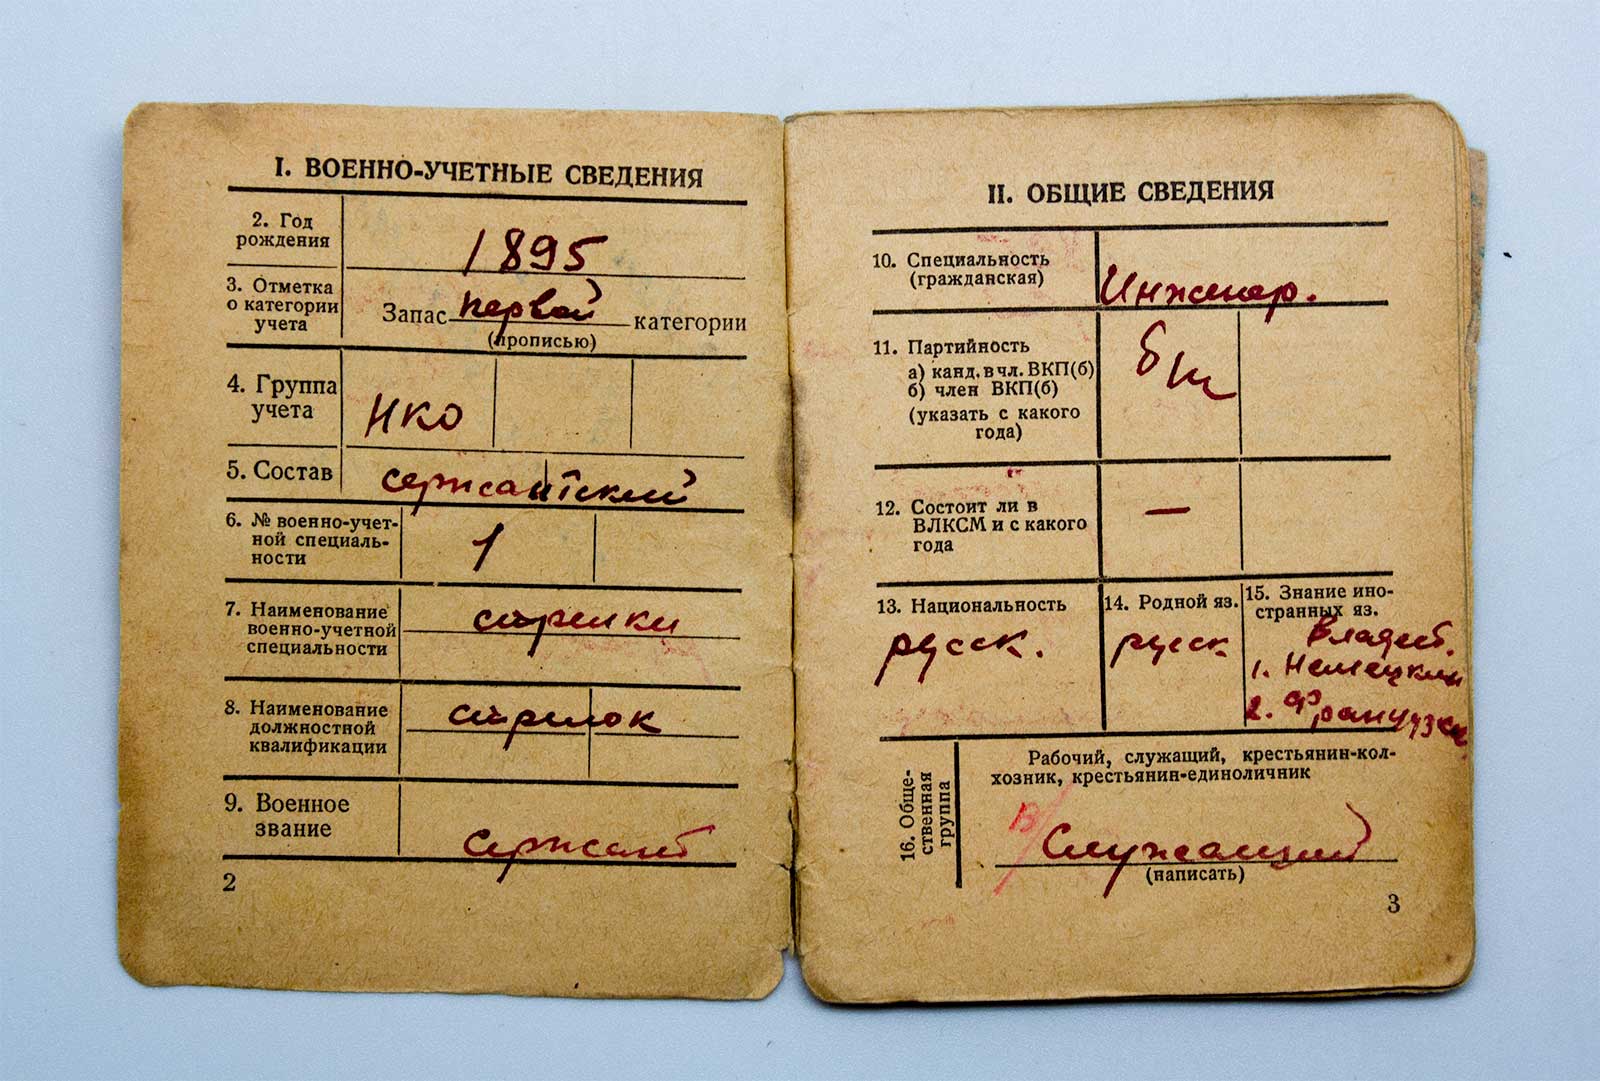 I. ВОЕННО-УЧЕТНЫЕ СВЕДЕНИЯ
2. Год
рождения
1895
3. Отметка
о категории
учета
Запас первой категории
(прописью)
4. Группа
учета
НКО
5. Состав
сержантский
6. № военно-учет-
ной специаль-
ности
1
7. Наименование
военно-учетной
специальности
стрелки
8. Наименование
должностной
квалификации
стрелок
9. Военное
звание
сержант
2
II. ОБЩИЕ СВЕДЕНИЯ
10. Специальность
(гражданская)
Инженер.
11. Партийность
а) канд. в чл. ВКП(б)
б) член ВКП(б)
(указать с какого
года)
б/п
12. Состоит ли в
ВЛКСМ и с какого
года
—
13. Национальность
русск.
14. Родной яз.
русск
15. Знание ино-
странных яз.
Владеет.
1. Немецким
2. Французск
16. Обще-
ственная
группа
Рабочий, служащий, крестьянин-кол-
хозник, крестьянин-единоличник
Служащий
(написать)
3